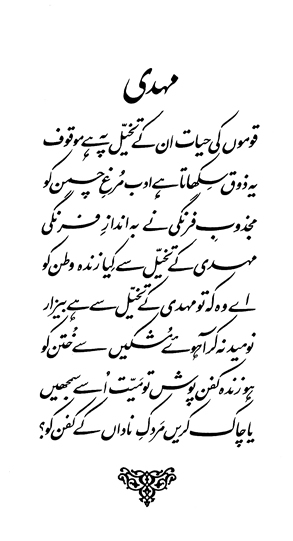 مہدی
قوموں کی حیات ان کے تخیّل پہ ہے موقوف
یہ ذوق سکھاتا ہے ادب مُرغِ چمن کو
مجذوبِ فرنگی نے بہ اندازِ فرنگی
مہدی کے تخیّل سے کیا زندہ وطن کو
اے وہ کہ تو مہدی کے تخیّل سے ہے بیزار
نومید نہ کر آہوئے مُشکیں سے خُتن کو
ہو زندہ کفن پوش تو میّت اُسے سمجھیں
یا چاک کریں مَردکِ ناداں کے کفن کو؟